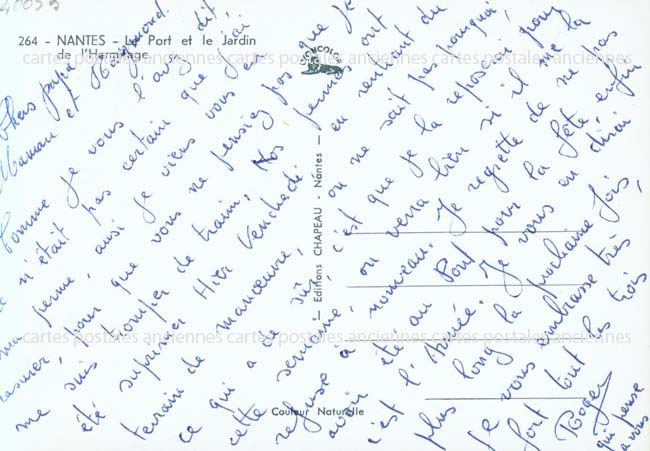 264 - NANTES - Le Port et le Jardin
de l'Hermitage
Chers papa
Maman et Raymond.
Comme je vous l'avez dit
ce n'était pas certain que j'ai
ma perme, aussi je viens vous en
rassurer, pour que vous ne pensiez pas que je
me suis tromper de train. Nos permes ont
été supprimer Hier Vendredi en rentrant du
terrain de manœuvre, on ne sait pas pourquoi,
ce qui a de sûr, c'est que je la reposerai pour
cette semaine, on verra bien si il me la
refuse à nouveau. Je regrette de ne pas
avoir été au Pont pour la fête enfin
c'est l'Armée. Je vous en dirai
plus long la prochaine fois,
Je vous embrasse très
fort tout les trois
Roger
qui pense
a vous
Editions CHAPEAU - Nantes -
Couleur Naturelle
cartes postales anciennes cartes postales anciennes cartes postales anciennes
cartes postales anciennes cartes postales anciennes cartes postales anciennes